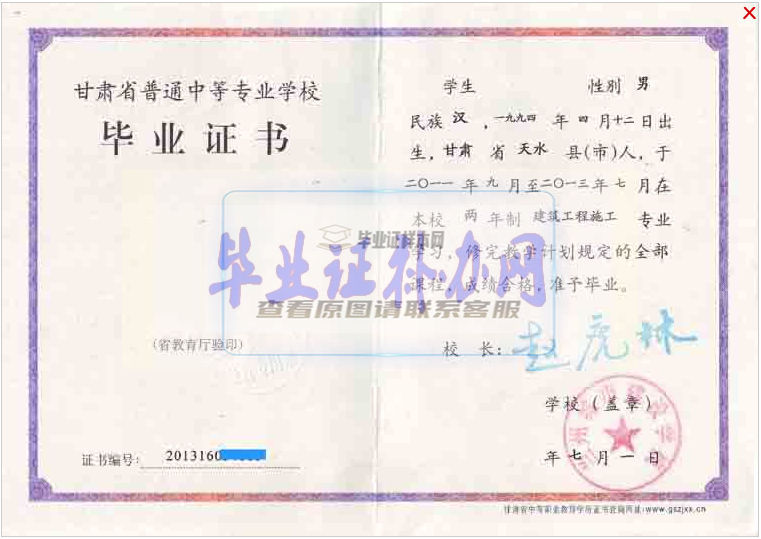 甘肃省普通中等专业学校
毕业证书
(省教育厅验印)
证书编号:
2013160
学生 性别 男
民族 汉 , 一九九四 年 四 月十二日出
生, 甘肃 省 天水 县(市)人, 于
二〇一一 年 九 月至二〇一三年 七 月在
本校 两 年制 建筑工程施工 专业
学习, 修完教学计划规定的全部
课程, 成绩合格, 准予毕业。
校 长: 赵虎林
学校 (盖章)
年 七 月 一 日
毕业证样本网
毕业证补办网
查看原图请联系客服
甘肃省中等职业教育学历证书查询网址:www.gszjxx.cn